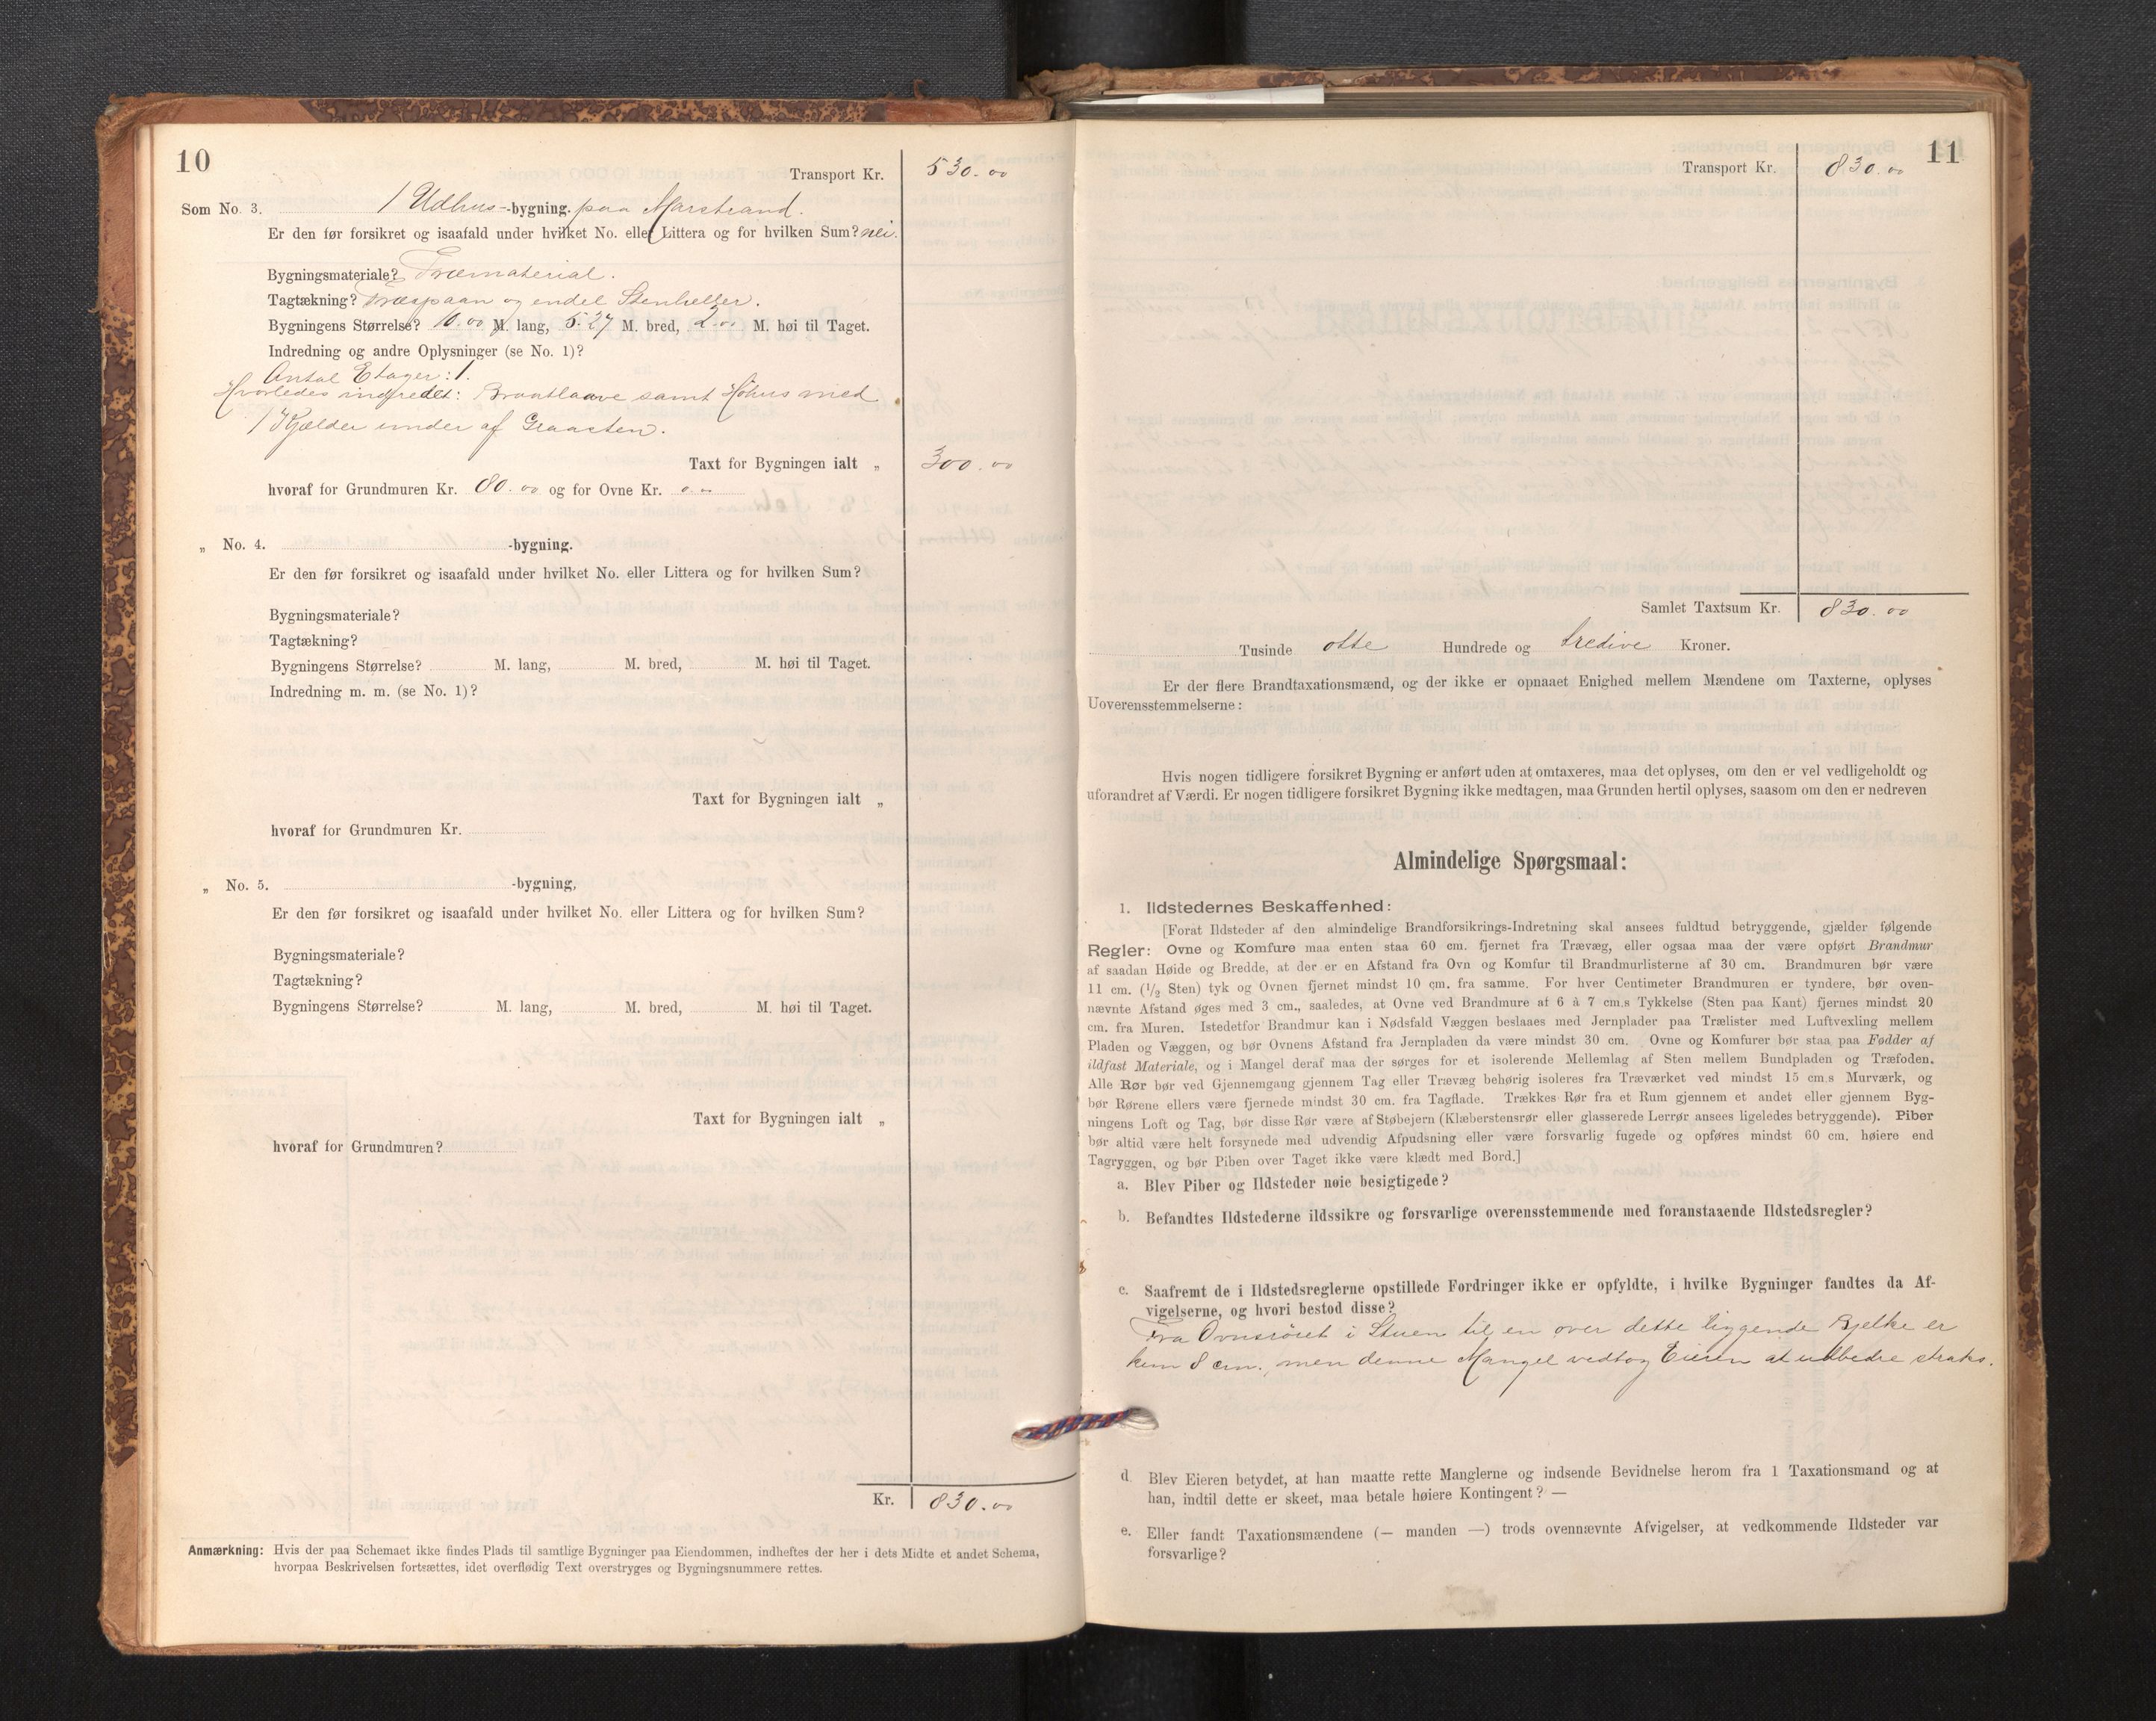 10
Transport Kr. 530.00
Som No. 3. 1 Udhus-bygning. paa Marstrand.
Er den før forsikret og isaafald under hvilket No. eller Littera og for hvilken Sum? nei.
Bygningsmateriale? Træmaterial.
Tagtækning? Træspaan og endel Stenheller.
Bygningens Størrelse? 10.00 M. lang, 5.27 M. bred, 2.00 M. høi til Taget.
Indredning og andre Oplysninger (se No. 1)?
Antal Etager: 1.
Hvorledes indredet: Braatlaave samt Höhus med
1 Kjælder under af Graasten.
Taxt for Bygningen ialt „ 300.00
hvoraf for Grundmuren Kr. 80.00 og for Ovne Kr.
„ No. 4. -bygning.
Er den før forsikret og isaafald under hvilket No. eller Littera og for hvilken Sum?
Bygningsmateriale?
Tagtækning?
Bygningens Størrelse? M. lang, M. bred, M. høi til Taget.
Indredning m. m. (se No. 1)?
Taxt for Bygningen ialt „
hvoraf for Grundmuren Kr.
„ No. 5. -bygning,
Er den før forsikret og isaafald under hvilket No. eller Littera og for hvilken Sum?
Bygningsmateriale?
Tagtækning?
Bygningens Størrelse? M. lang, M. bred, M. høi til Taget.
Taxt for Bygningen ialt „
hvoraf for Grundmuren?
Kr. 830.00
Anmærkning: Hvis der paa Schemaet ikke findes Plads til samtlige Bygninger paa Eiendommen, indheftes der her i dets Midte et andet Schema,
hvorpaa Beskrivelsen fortsættes, idet overflødig Text overstryges og Bygningsnummere rettes.
11
Transport Kr. 830.00
Samlet Taxtsum Kr. 830.00
Tusinde otte Hundrede og tredive Kroner.
Er der flere Brandtaxationsmænd, og der ikke er opnaaet Enighed mellem Mændene om Taxterne, oplyses
Uoverensstemmelserne:
Hvis nogen tidligere forsikret Bygning er anført uden at omtaxeres, maa det oplyses, om den er vel vedligeholdt og
uforandret af Værdi. Er nogen tidligere forsikret Bygning ikke medtagen, maa Grunden hertil oplyses, saasom om den er nedreven
Almindelige Spørgsmaal:
1. Ildstedernes Beskaffenhed:
[Forat Ildsteder af den almindelige Brandforsikrings-Indretning skal ansees fuldtud betryggende, gjælder følgende
Regler: Ovne og Komfure maa enten staa 60 cm. fjernet fra Trævæg, eller ogsaa maa der være opført Brandmur
af saadan Høide og Bredde, at der er en Afstand fra Ovn og Komfur til Brandmurlisterne af 30 cm. Brandmuren bør være
11 cm. (1/2 Sten) tyk og Ovnen fjernet mindst 10 cm. fra samme. For hver Centimeter Brandmuren er tyndere, bør oven-
nævnte Afstand øges med 3 cm., saaledes, at Ovne ved Brandmure af 6 à 7 cm.s Tykkelse (Sten paa Kant) fjernes mindst 20
cm. fra Muren. Istedetfor Brandmur kan i Nødsfald Væggen beslaaes med Jernplader paa Trælister med Luftvexling mellem
Pladen og Væggen, og bør Ovnens Afstand fra Jernpladen da være mindst 30 cm. Ovne og Komfurer bør staa paa Fødder af
ildfast Materiale, og i Mangel deraf maa der sørges for et isolerende Mellemlag af Sten mellem Bundpladen og Træfoden.
Alle Rør bør ved Gjennemgang gjennem Tag eller Trævæg behørig isoleres fra Træværket ved mindst 15 cm.s Murværk, og
bør Rørene ellers være fjernede mindst 30 cm. fra Tagflade. Trækkes Rør fra et Rum gjennem et andet eller gjennem Byg-
ningens Loft og Tag, bør disse Rør være af Støbejern (Klæberstensrør eller glasserede Lerrør ansees ligeledes betryggende). Piber
bør altid være helt forsynede med udvendig Afpudsning eller være forsvarlig fugede og opføres mindst 60 cm. høiere end
Tagryggen, og bør Piben over Taget ikke være klædt med Bord.]
a. Blev Piber og Ildsteder nøie besigtigede?
b. Befandtes Ildstederne ildssikre og forsvarlige overensstemmende med foranstaaende Ildstedsregler?
c. Saafremt de i Ildstedsreglerne opstillede Fordringer ikke er opfyldte, i hvilke Bygninger fandtes da Af-
vigelserne, og hvori bestod disse?
Fra Ovnsröret i Stuen til en over dette liggende Bjelke er
kun 8 cm., men denne Mangel vedtog Eieren at udbedre straks.
d. Blev Eieren betydet, at han maatte rette Manglerne og indsende Bevidnelse herom fra 1 Taxationsmand og at
han, indtil dette er skeet, maa betale høiere Kontingent? —
e. Eller fandt Taxationsmændene (— manden —) trods ovennævnte Afvigelser, at vedkommende Ildsteder var
forsvarlige?